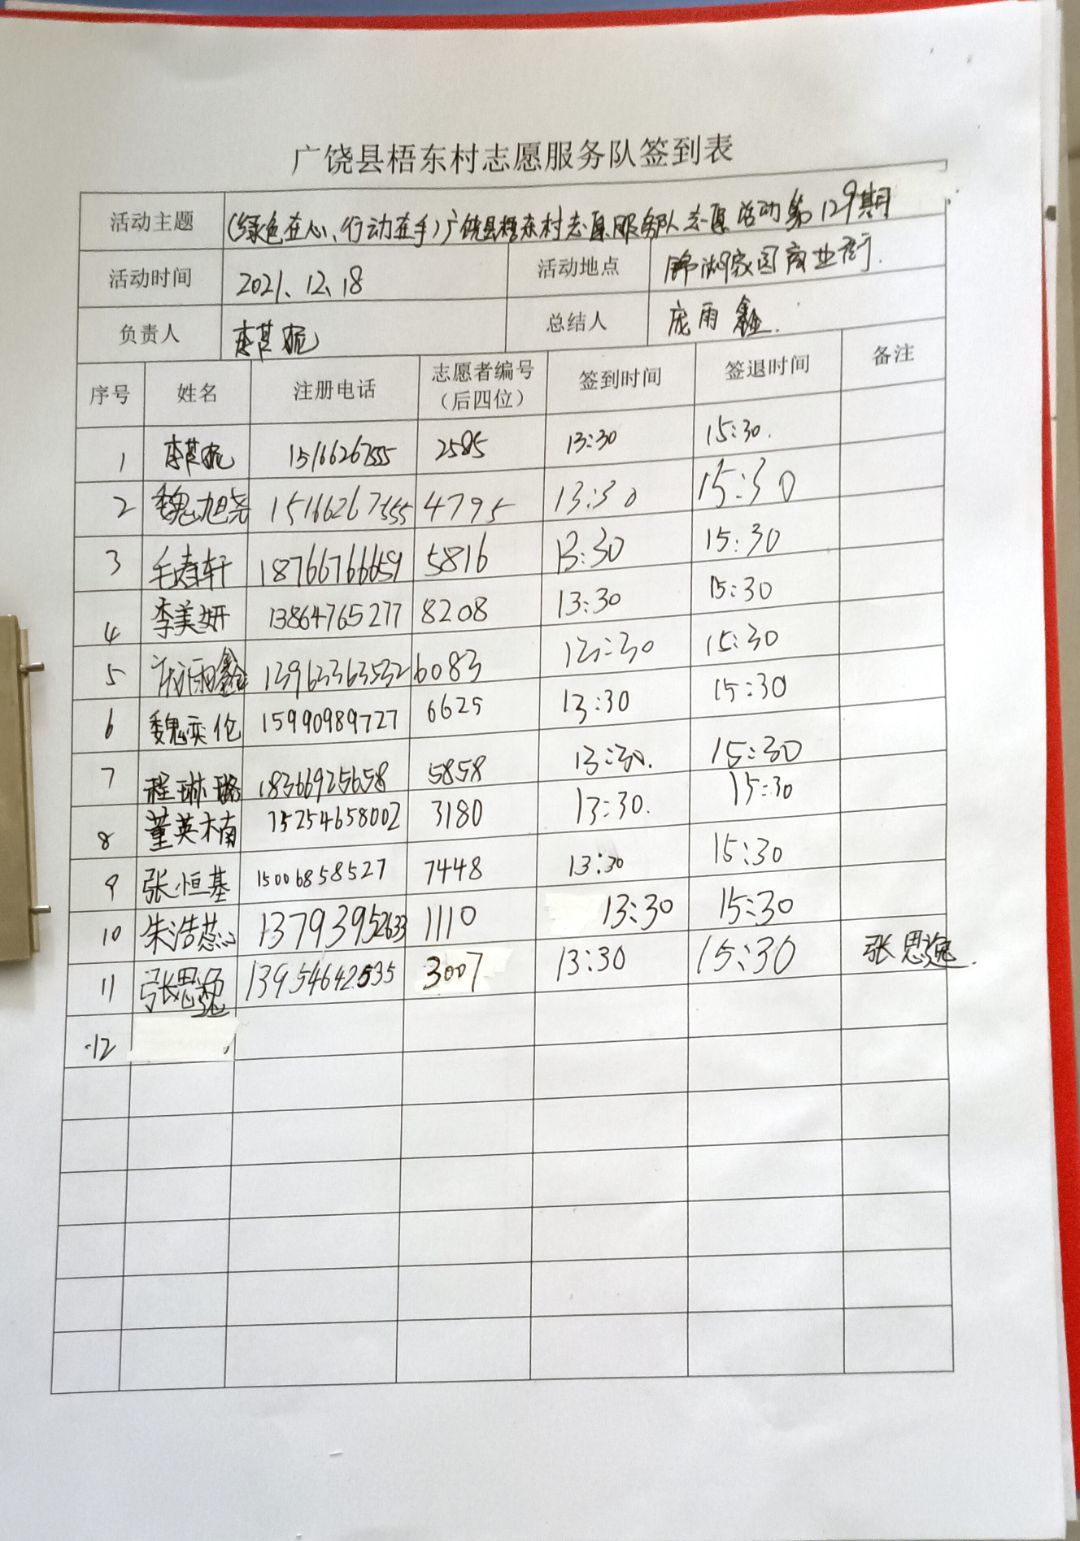 广饶县梧东村志愿服务队签到表
活动主题 (绿色在心、行动在手)广饶县梧东村志愿服务队志愿活动第129期
活动时间 2021.12.18 活动地点 锦湖家园商业街.
负责人 李萁妮 总结人 庞雨鑫.
序号 姓名 注册电话 志愿者编号（后四位） 签到时间 签退时间 备注
1 李萁妮 15166267555 2585 13:30 15:30.
2 魏旭尧 15166267555 4795 13:30 15:30
3 毛春轩 18766766659 5816 13:30 15:30
4 李美妍 13864765277 8208 13:30 15:30
5 庞雨鑫 13963363532 6083 13:30 15:30
6 魏奕伦 15990989727 6625 13:30 15:30
7 程琳璐 18366925658 5858 13:30. 15:30
8 董英楠 15254658002 3180 13:30. 15:30
9 张恒基 15006858527 7448 13:30 15:30
10 朱浩蕊 13793952633 1110 13:30 15:30
11 张思逸 13954642535 3007 13:30 15:30 张思逸.
12